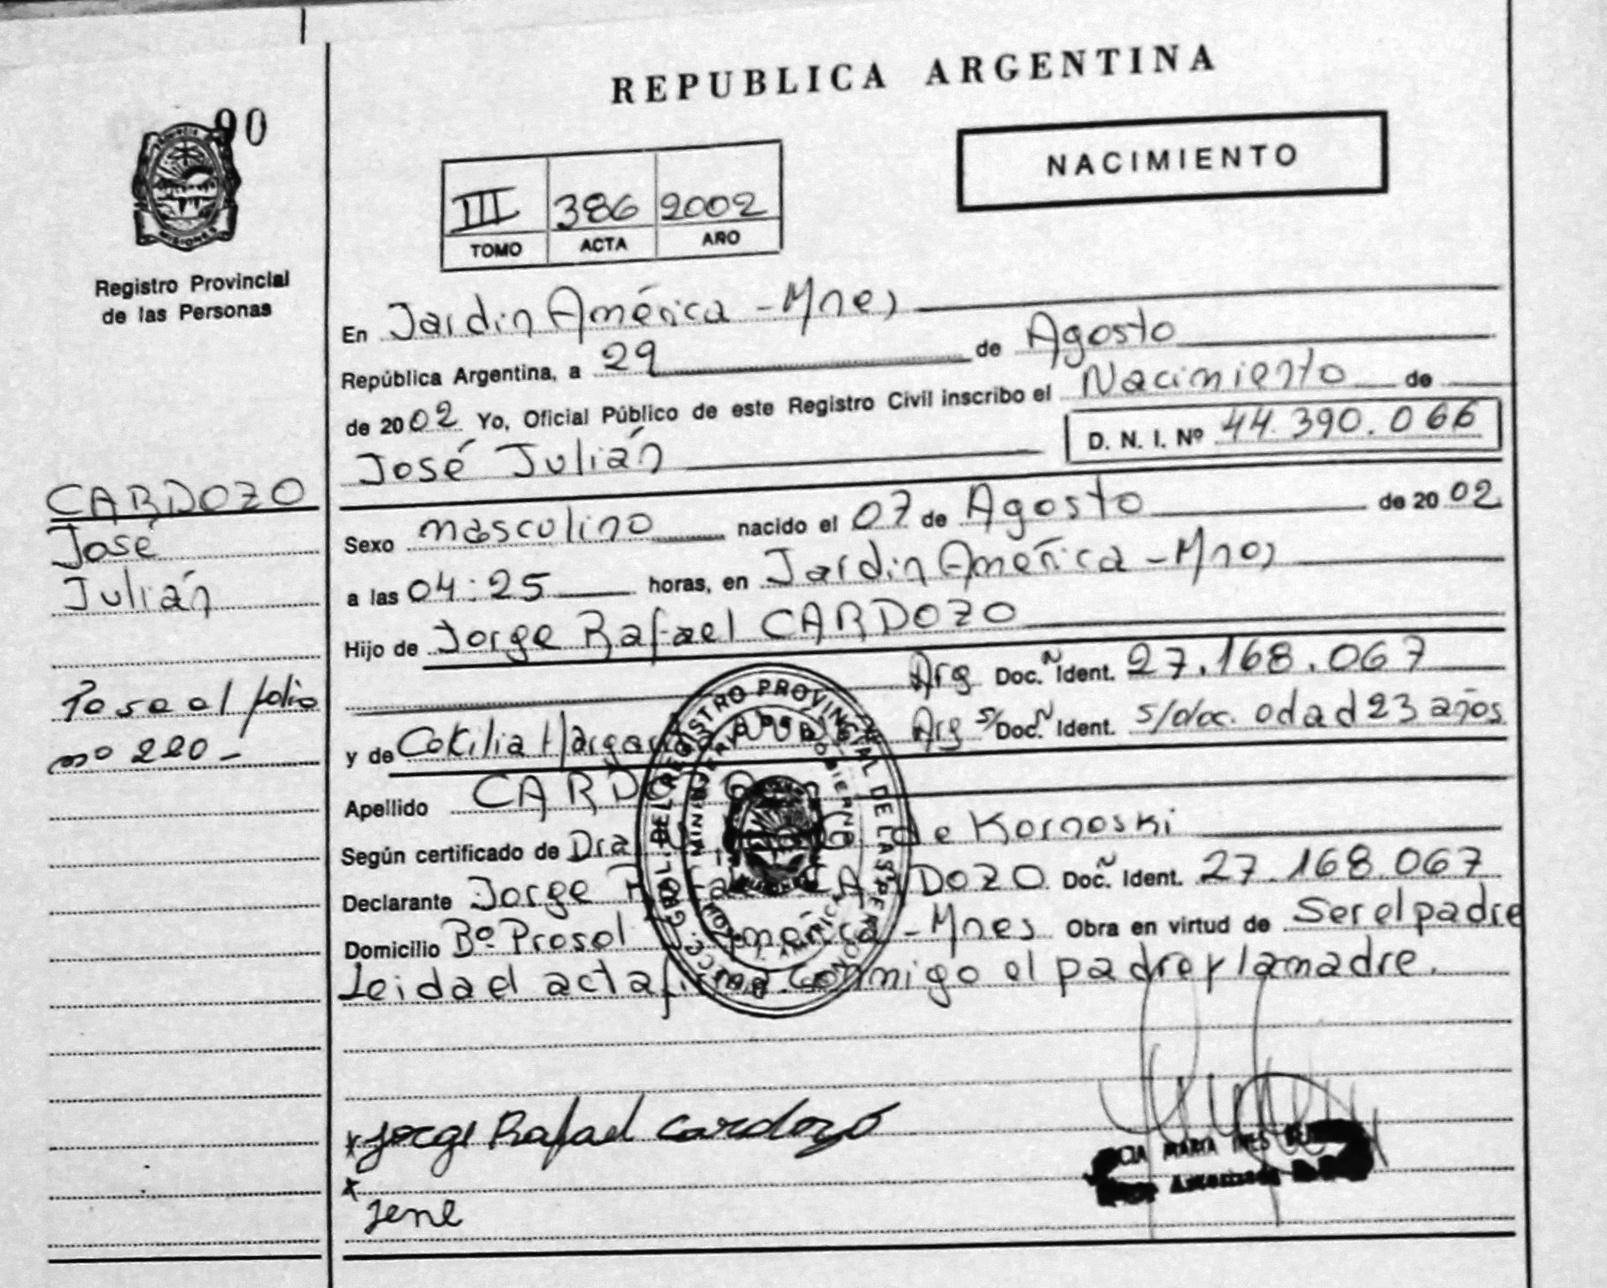 REPUBLICA ARGENTINA
90
NACIMIENTO
III 386 2002
TOMO ACTA AÑO
MISIONES
Registro Provincial
de las Personas
En Jardin América - Mnes
República Argentina, a 29 de Agosto
de 2002 Yo, Oficial Público de este Registro Civil inscribo el Nacimiento de
José Julián D. N. I. Nº 44.390.066
CARDOZO
José
Julián
Pase al folio
nº 220 -
Sexo masculino nacido el 07 de Agosto de 2002
a las 04:25 horas, en Jardin América - Mnes
Hijo de Jorge Rafael CARDOZO
Arg Doc. Ident. 27.168.067
y de Arg s/Doc. Ident. s/doc. edad 23 años
Apellido
Según certificado de Dra de Kornoski
Declarante Jorge CARDOZO Doc. Ident. 27.168.067
Domicilio Bº Prosol América - Mnes Obra en virtud de Ser el padre
Leida el acta conmigo el padre y la madre.
DEL REGISTRO PROVINCIAL DE LAS PERSONAS
x Jorge Rafael Cardozo
x
MARIA INES